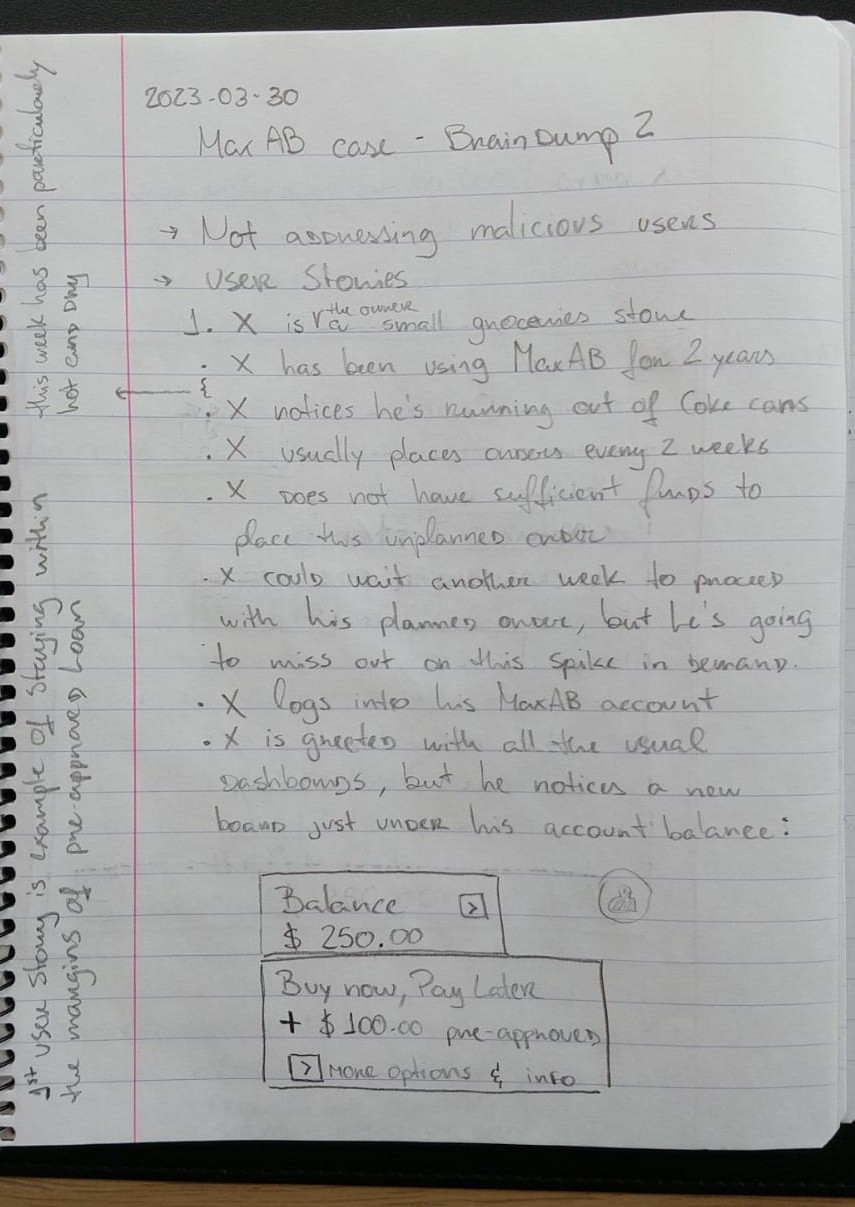 2023-03-30
MaxAB case - BrainDump 2
→ Not addressing malicious users
→ User Stories
1. X is the owner a small groceries store
. X has been using MaxAB for 2 years
. X notices he's running out of Coke cans
. X usually places orders every 2 weeks
. X does not have sufficient funds to
place this unplanned order
. X could wait another week to proceed
with his planned order, but he's going
to miss out on this spike in demand.
. X logs into his MaxAB account
. X is greeted with all the usual
dashboards, but he notices a new
board just under his account balance:
Balance >
$ 250.00
Buy now, Pay Later
+ $100.00 pre-approved
> More options & info
this week has been particularely
hot and dry
1st user story is example of staying within
the margins of pre-approved loan